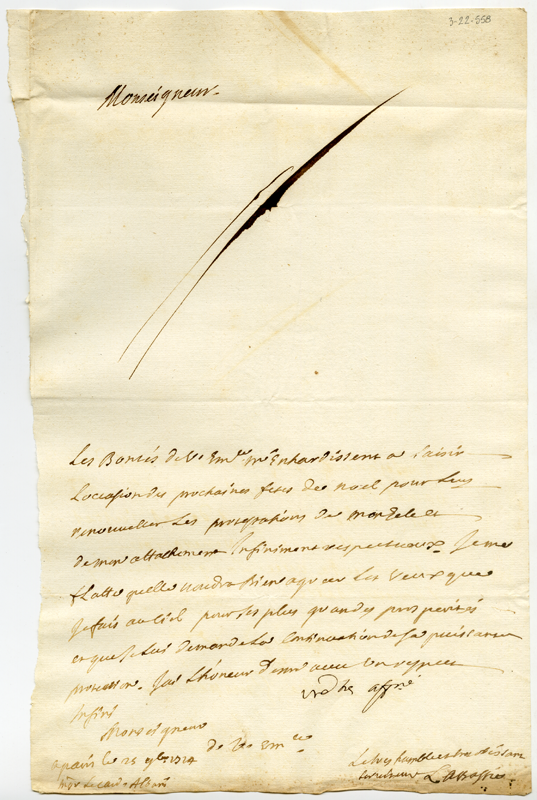 3-22-558
Monseigneur
Les Bontés de V. Emce m'Enhardissent a saisir
L'occasion des prochaines fetes de noel pour Luy
renouveller Les protestations de mon Zele et
de mon attachement Infiniment respectueux. Je me
flatte quelle voudra Bien agreer Les veux que
Je fais au Ciel pour ses plus grandes prosperités
et que Je Lui demande La Continuation de sa puissante
protection. Jai L'honeur d'etre avec Un respect
Infini
Monseigneur
de V. Emce
a paris le 25 9bre 1714
Le tres humble et tres obeissant
serviteur
mgr Le card. Albani